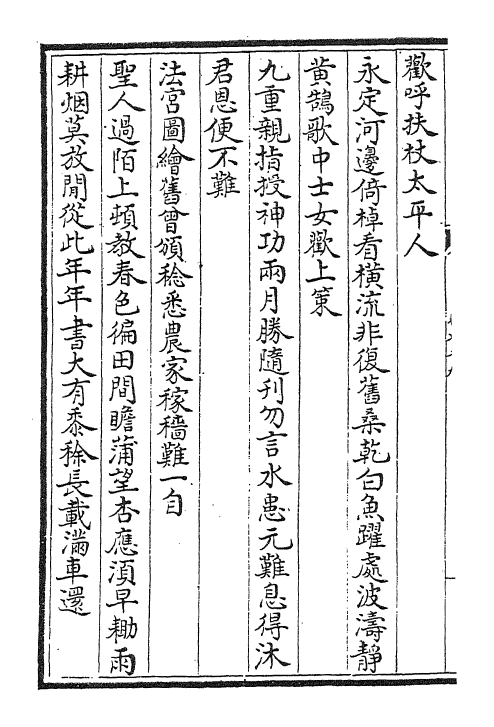 歡呼扶杖太平人
永定河邊倚棹看橫流非復舊桑乾白魚躍處波濤靜
黃鵠歌中士女歡上策
九重親指授神功兩月勝隨刋勿言水患元難息得沐
君恩便不難
法宮圖繪舊曾頒稔悉農家稼穡難一自
聖人過陌上頓教春色徧田間瞻蒲望杏應湏早耡雨
耕烟莫放閒從此年年書大有黍稌長載滿車還